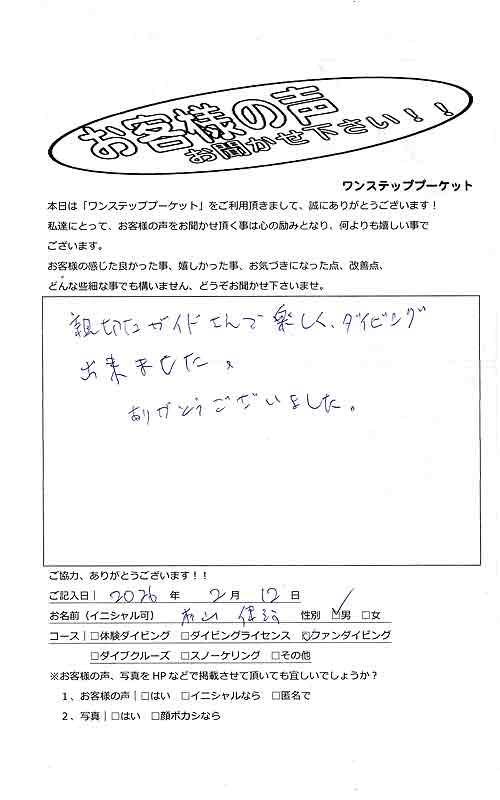 お客様の声
お聞かせ下さい！！
ワンステッププーケット
本日は「ワンステッププーケット」をご利用頂きまして、誠にありがとうございます！
私達にとって、お客様の声をお聞かせ頂く事は心の励みとなり、何よりも嬉しい事で
ございます。
お客様の感じた良かった事、嬉しかった事、お気づきになった点、改善点、
どんな些細な事でも構いません、どうぞお聞かせ下さいませ。
親切なガイドさんで楽しく、ダイビング
出来ました。
ありがとうございました。
ご協力、ありがとうございます！！
ご記入日 | 2026 年 2 月 12 日
お名前（イニシャル可） 性別 ☑男 □女
コース | □体験ダイビング □ダイビングライセンス ☑ファンダイビング
□ダイブクルーズ □スノーケリング □その他
※お客様の声、写真を HP などで掲載させて頂いても宜しいでしょうか？
１、お客様の声 | □はい □イニシャルなら □匿名で
２、写真 | □はい □顔ボカシなら